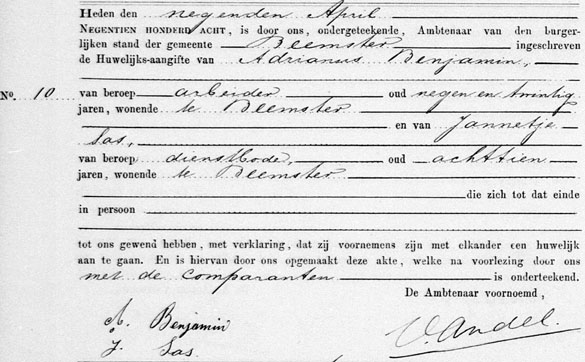 Heden den negenden April
NEGENTIEN HONDERD ACHT, is door ons, ondergeteekende, Ambtenaar van den burger-
lijken stand der gemeente Beemster ingeschreven
de Huwelijks-aangifte van Adrianus Benjamin,
No. 10 van beroep arbeider oud negen en twintig
jaren, wonende te Beemster
en van Jannetje
Sas,
van beroep dienstbode, oud achttien
jaren, wonende te Beemster
die zich tot dat einde
in persoon
tot ons gewend hebben, met verklaring, dat zij voornemens zijn met elkander een huwelijk
aan te gaan. En is hiervan door ons opgemaakt deze akte, welke na voorlezing door ons
met de comparanten is onderteekend.
De Ambtenaar voornoemd,
A. Benjamin
J. Sas
V. Andel.